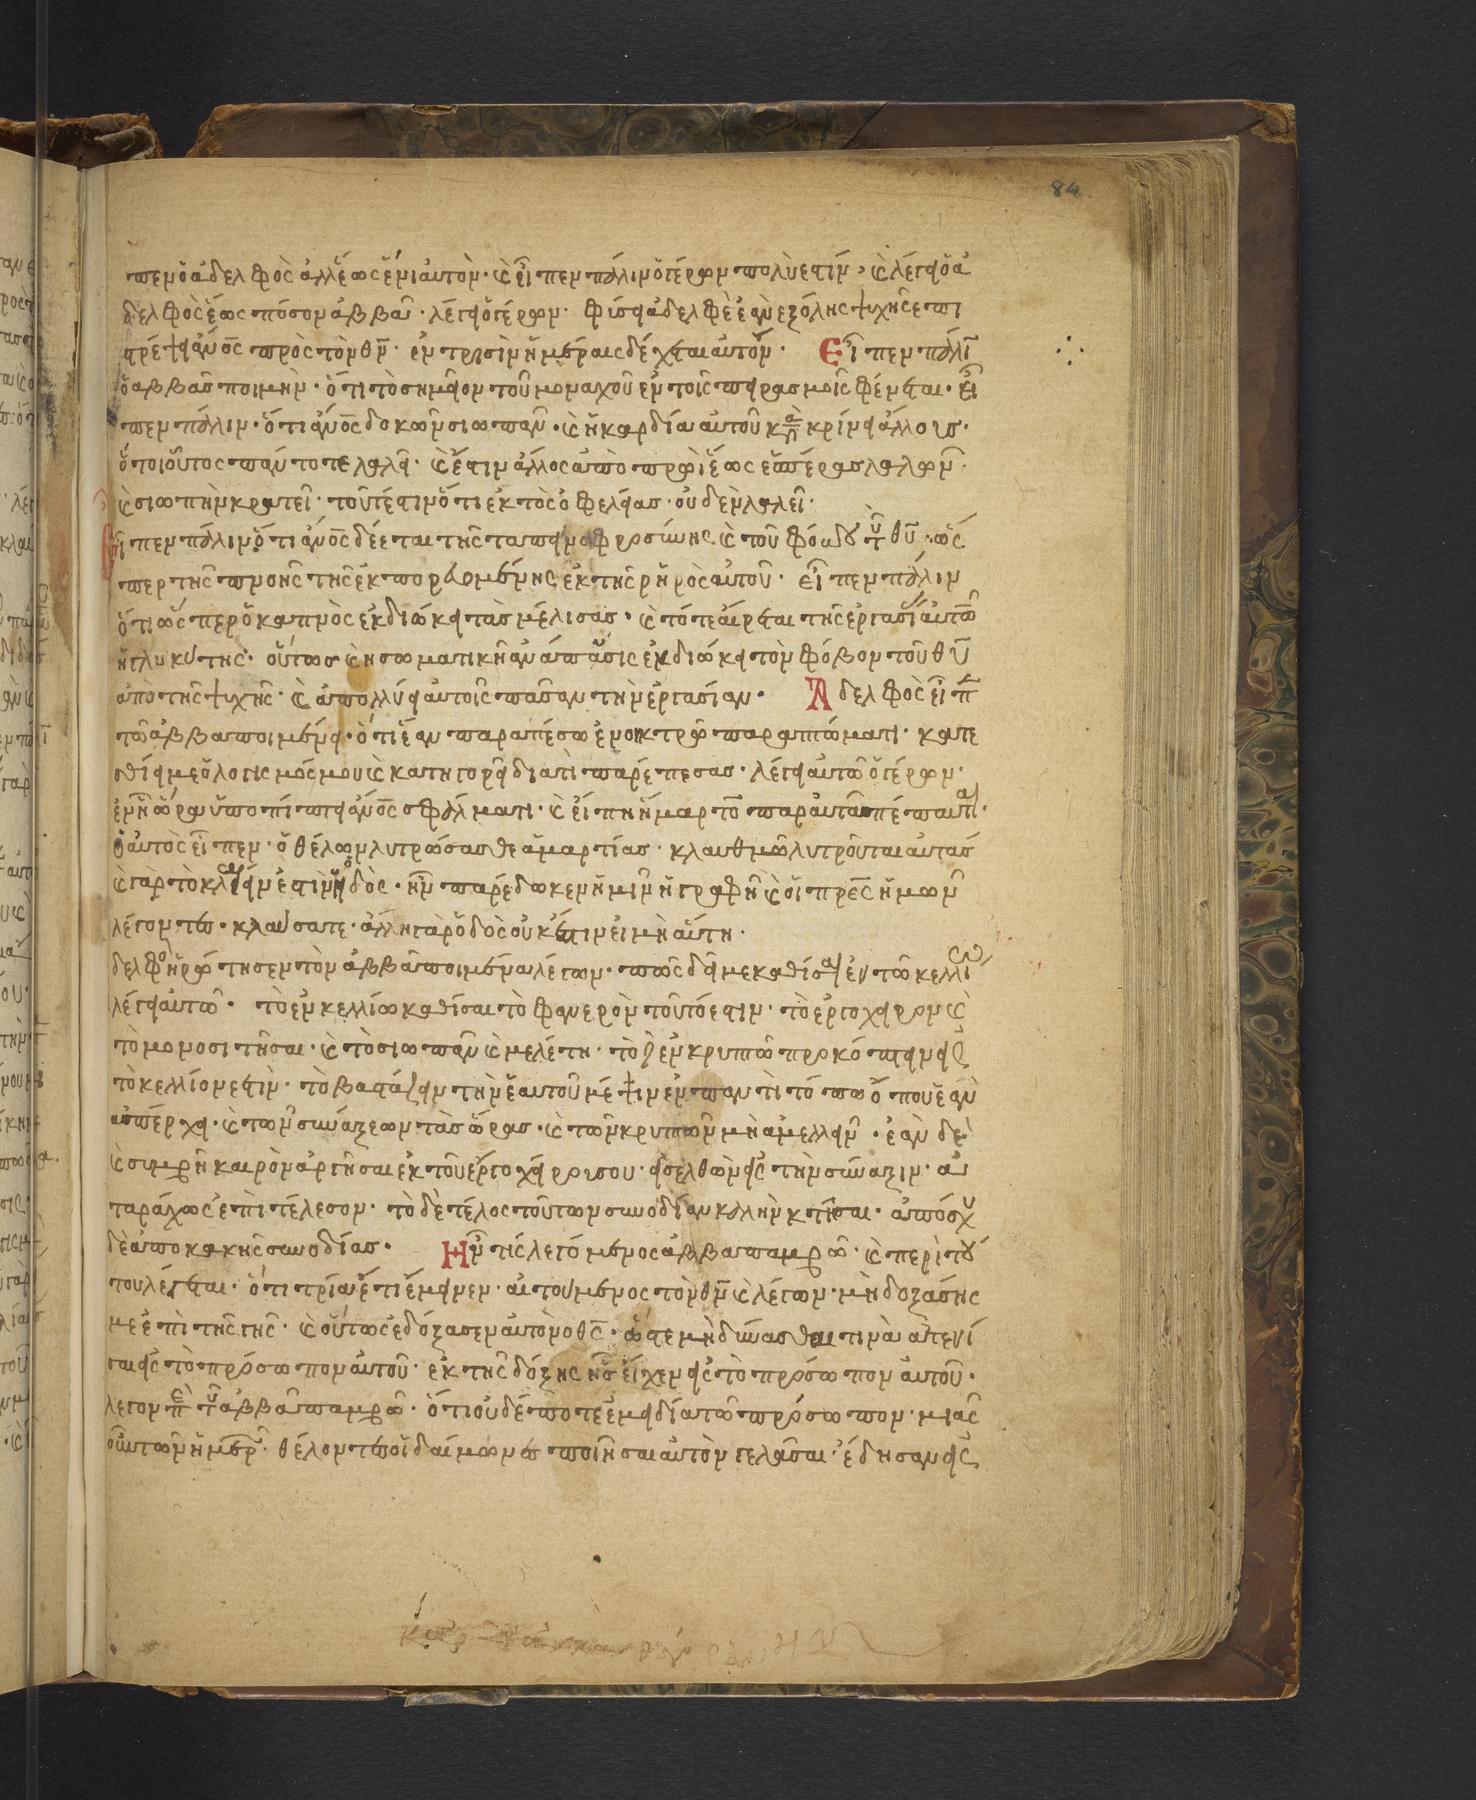 84
πεν ὁ ἀδελφὸς ἀλλ' ἕως ἕνι αὐτὸν· καὶ εἶπεν πάλιν ὁ γέρων πολὺ ἐστίν· καὶ λέγει ὁ ἀ
δελφὸς ἕως πόσον ἀββᾶ· λέγει ὁ γέρων· φησὶ ἀδελφὲ ἐὰν ἐξ ὅλης ψυχῆς ἐπι
στρέψει ἄνος πρὸς τὸν θν· ἐν τρισὶν ἡμέραις δέχεται αὐτόν· Εἶπεν πάλι
ὁ ἀββᾶς ποιμὴν· ὅτι τὸ σημεῖον τοῦ μοναχοῦ ἐν τοῖς πειρασμοῖς φένεται· εἶ
πεν πάλιν· ὅτι ἄνος δοκῶν σιωπᾶν· καὶ ἡ καρδία αὐτοῦ κατακρίνει ἄλλους·
ὁ τοιοῦτος πάντοτε λαλεῖ· καὶ ἔστιν ἄλλος ἀπὸ πρωὶ ἕως ἑσπέρας λαλῶν
καὶ σιωπὴν κρατεῖ· τουτέστιν ὅτι ἐκτὸς ὀφελείας· οὐδὲν λαλεῖ·
Εἶπεν πάλιν ὅτι ἄνος δέεται τῆς ταπεινοφροσύνης καὶ τοῦ φόβου τοῦ θυ· ὥσ
περ τῆς πνοῆς τῆς ἐκπορευομένης ἐκ τῆς ρηρὸς αὐτοῦ· εἶπεν πάλιν
ὅτι ὥσπερ ὁ καπνὸς ἐκδιώκει τὰς μέλισας· καὶ τότε αἴρεται τῆς ἐργασίας αὐτῶ
ἡ γλυκύτης· οὕτως καὶ ἡ σωματικὴ ἀνάπαυσις ἐκδιώκει τὸν φόβον τοῦ θυ
ἀπὸ τῆς ψυχῆς· καὶ ἀπολλύει αὐτοῖς πᾶσαν τὴν ἐργασίαν· Ἀδελφὸς εἶπ
τῶ ἀββᾶ ποιμένι· ὅτι ἐὰν παραπέσω ἐν οἰκτρῶ παραπτώματι· κατε
σθίει με ὁ λογισμός μου καὶ κατηγορεῖ διατὶ παρέπεσας· λέγει αὐτῶ ὁ γέρων·
ἐν ἧ ὥρα ὑποπίπτει ἄνος σφάλματι· καὶ εἴπῃ ἥμαρτον παραυτὰ πέπαυται·
ὁ αὐτὸς εἶπεν· ὁ θέλων λυτρώσασθε ἁμαρτίας· κλαυθμῶ λυτροῦται αὐτάς
καὶ γὰρ τὸ κλαίειν ἐστὶν ἡ ὁδὸς· ἣν παρέδωκεν ἡμῖν ἡ γραφὴ καὶ οἱ πρες ἡμῶν
λέγοντες· κλαύσατε· ἄλλη γὰρ ὁδὸς οὐκ ἔστιν εἰ μὴ αὕτη·
δελφὸς ἠρώτησεν τὸν ἀββᾶ ποιμένα λέγων· πῶς δεῖ με καθίσαι ἐν τῶ κελλίω
λέγει αὐτῶ· τὸ ἐν κελλίω καθίσαι τὸ φανερὸν τοῦτό ἐστιν· τὸ ἐργόχειρον καὶ
τὸ μονοσιτῆσαι· καὶ τὸ σιωπᾶν καὶ μελέτη· τὸ δὲ ἐν κρυπτῶ προκόπτειν εἰς
τὸ κελλίον ἐστὶν· τὸ βαστάζειν τὴν ἑαυτοῦ μέμψιν ἐν παντὶ τόπω ὅπου ἐὰν
ἀπέρχει· καὶ τῶν συνάξεων τὰς ὥρας· καὶ τῶν κρυπτῶν μὴ ἀμελλεῖν· ἐὰν δὲ
καὶ συμβῆ καιρὸν ἀργῆσαι ἐκ τοῦ ἐργοχείρου σου· εἰσελθὼν εἰς τὴν σύναξιν· ἀ
ταράχως ἐπιτέλεσον· τὸ δὲ τέλος τούτων συνοδίαν καλὴν κτῆσαι· ἀπόσχου
δὲ ἀπὸ κακῆς συνοδίας· Ἦν τίς λεγόμενος ἀββᾶ παμβῶ· καὶ περὶ τού
του λέγεται· ὅτι τρία ἔτι ἔμεινεν· αἰτούμενος τὸν θν καὶ λέγων· μὴ δοξάσῃς
με ἐπὶ τῆς γῆς· καὶ οὕτως ἐδόξασεν αὐτὸν ὁ θς· ὥστε μὴ δύνασθαι τινὰ ἀτενί
σαι εἰς τὸ πρόσωπον αὐτοῦ· ἐκ τῆς δόξης ἧς εἶχεν εἰς τὸ πρόσωπον αὐτοῦ·
λεγον περὶ τοῦ ἀββᾶ παμβῶ· ὅτι οὐδέποτε ἐμειδία τῶ πρόσωπον· μιᾶς
οὖν τῶν ἡμερ· θέλοντες οἱ δαίμωνες ποιῆσαι αὐτὸν γελᾶσαι· ἔδησαν εἰς